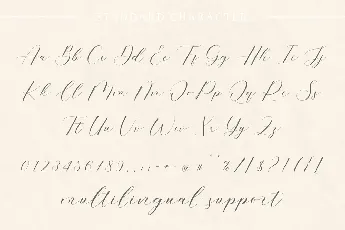 STANDARD CHARACTER
Aa Bb Cc Dd Ee Ff Gg Hh Ii Jj
Kk Ll Mm Nn Oo Pp Qq Rr Ss
Tt Uu Vv Ww Xx Yy Zz
multilingual support